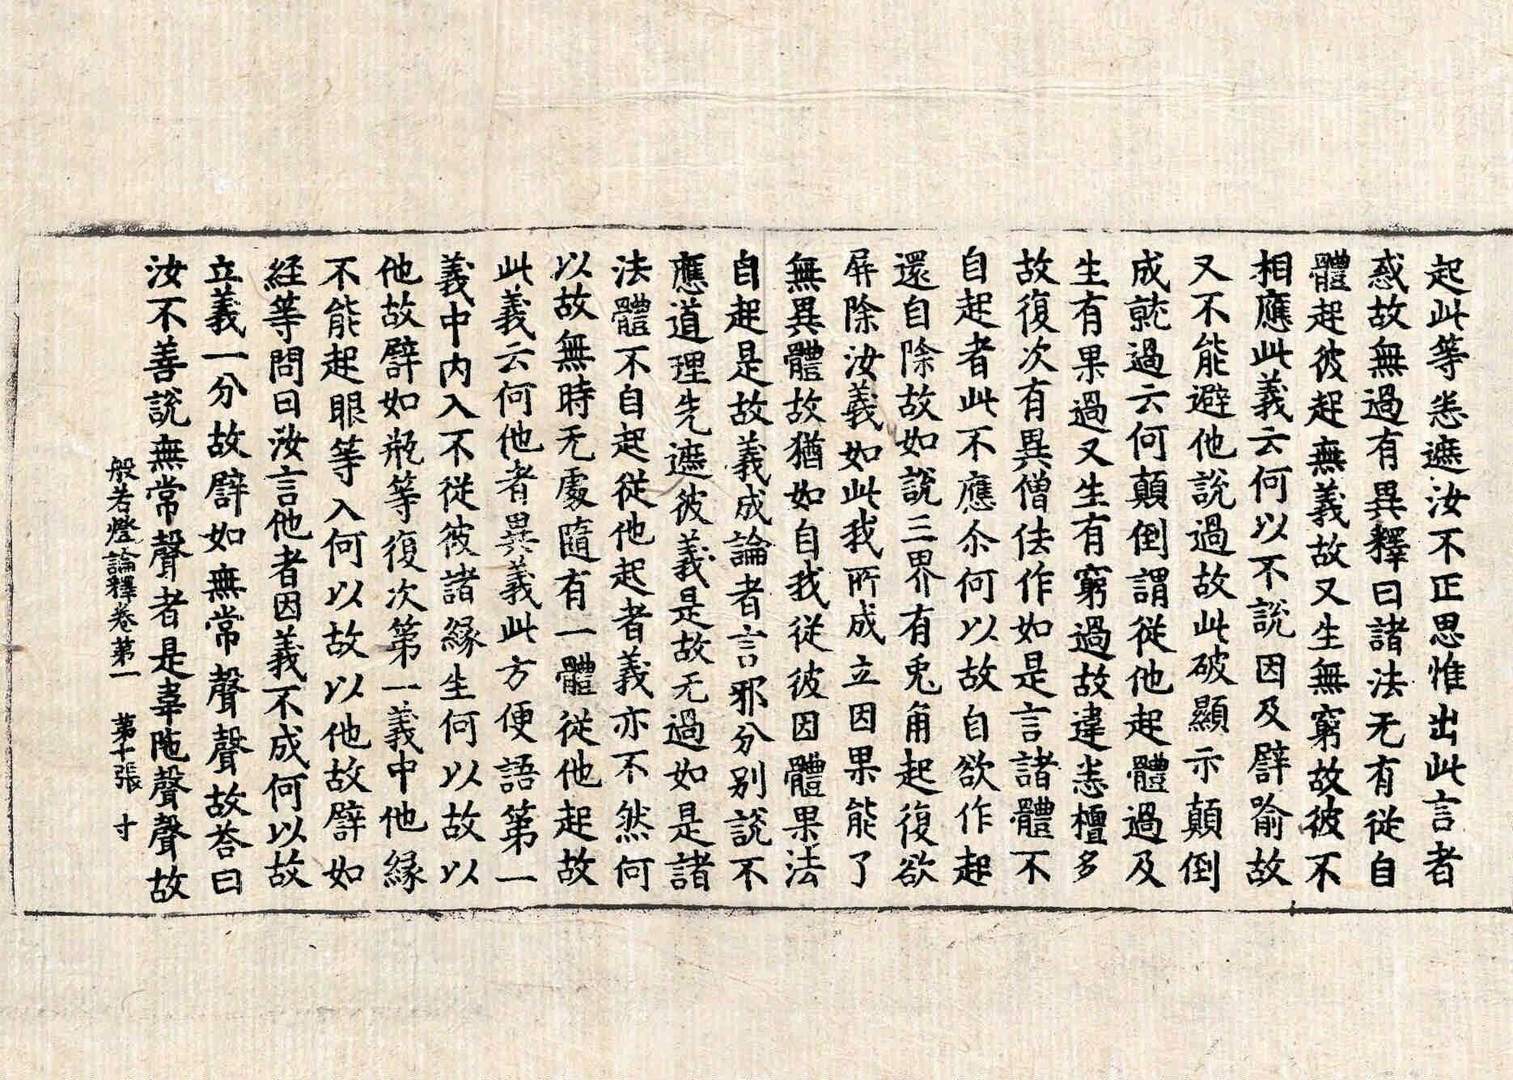 起此等悉遮汝不正思惟出此言者
惑故無過有異釋曰諸法无有從自
體起彼起無義故又生無窮故彼不
相應此義云何以不說因及譬喻故
又不能避他說過故此破顯示顛倒
成就過云何顛倒謂從他起體過及
生有果過又生有窮過故違悉檀多
故復次有異僧佉作如是言諸體不
自起者此不應尒何以故自欲作起
還自除故如說三界有兎角起復欲
屏除汝義如此我所成立因果能了
無異體故猶如自我從彼因體果法
自起是故義成論者言邪分別說不
應道理先遮彼義是故无過如是諸
法體不自起從他起者義亦不然何
以故無時无處隨有一體從他起故
此義云何他者異義此方便語第一
義中內入不從彼諸緣生何以故以
他故譬如瓶等復次第一義中他緣
不能起眼等入何以故以他故譬如
経等問曰汝言他者因義不成何以故
立義一分故譬如無常聲聲故荅曰
汝不善說無常聲者是辜陁聲聲故
般若燈論釋卷第一　第十張　寸